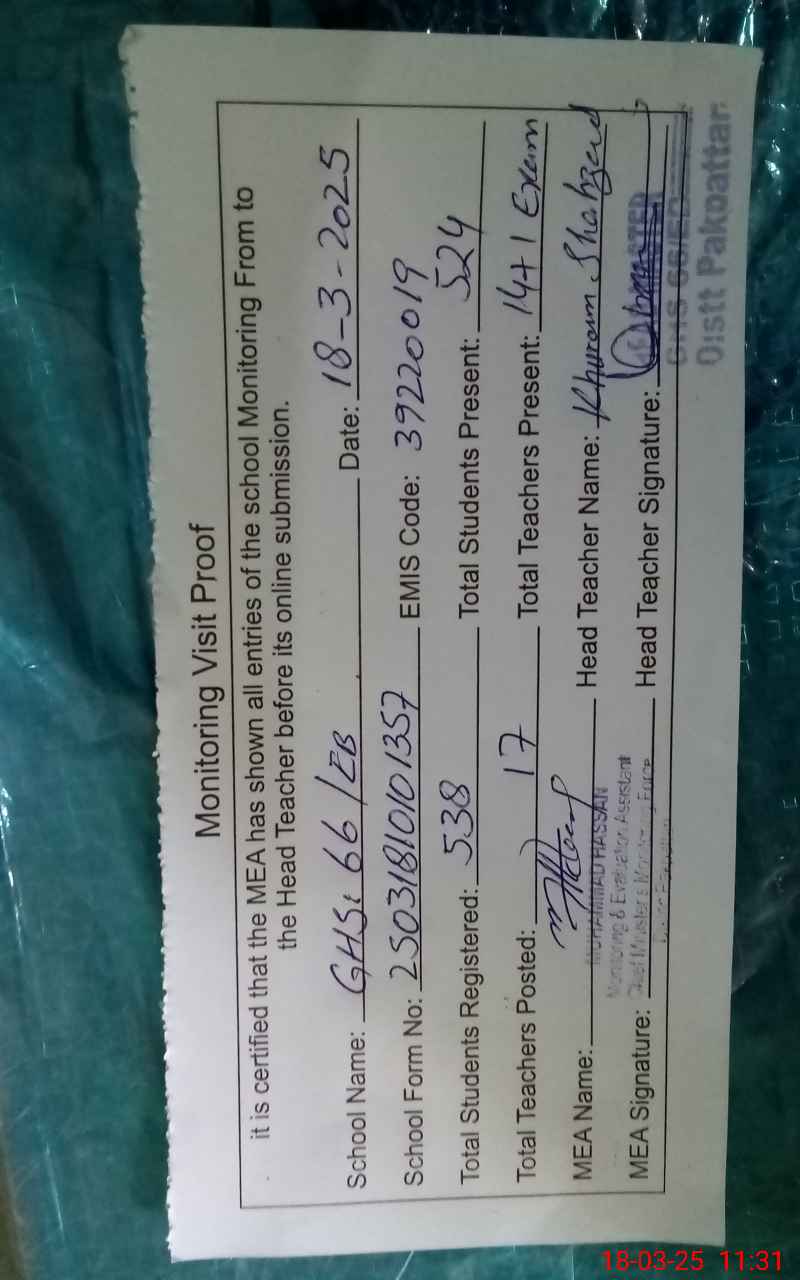 Monitoring Visit Proof
it is certified that the MEA has shown all entries of the school Monitoring From to
the Head Teacher before its online submission.
School Name: GHS: 66/EB Date: 18-3-2025
School Form No: 25031810101357 EMIS Code: 39220019
Total Students Registered: 538 Total Students Present: 524
Total Teachers Posted: 17 Total Teachers Present: 14+1 Exam
MEA Name: MUHAMMAD HASSAN Head Teacher Name: Khuram Shahzad
Monitoring & Evaluation Assistant
MEA Signature: Chief Minister's Monitoring Force Head Teacher Signature:
GHS 66/EB
Distt Pakpattan
18-03-25 11:31